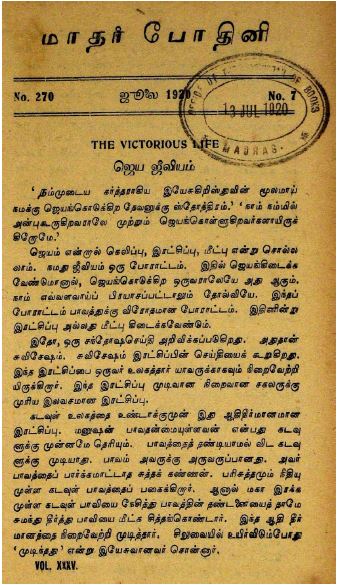 மாதர் போதினி
No. 270 ஜூலை 1920 No. 7
OF BOOKS
13 JUL 1920
MADRAS.
THE VICTORIOUS LIFE
ஜெய ஜீவியம்
‘நம்முடைய கர்த்தராகிய இயேசுகிறிஸ்துவின் மூலமாய்
நமக்கு ஜெயங்கொடுக்கிற தேவனுக்கு ஸ்தோத்திரம்.’ ‘நாம் நம்மில்
அன்புகூருகிறவராலே முற்றும் ஜெயங்கொள்ளுகிறவர்களாயிருக்
கிறோமே.’
ஜெயம் என்றால் கெலிப்பு, இரட்சிப்பு, மீட்பு என்று சொல்ல
லாம். நமது ஜீவியம் ஒரு போராட்டம். இதில் ஜெயங்கிடைக்க
வேண்டுமானால், ஜெயங்கொடுக்கிற ஒருவராலேயே அது ஆகும்.
நாம் எவ்வளவாய்ப் பிரயாசப்பட்டாலும் தோல்வியே. இந்தப்
போராட்டம் பாவத்துக்கு விரோதமான போராட்டம். இதினின்று
இரட்சிப்பு அல்லது மீட்பு கிடைக்கவேண்டும்.
இதோ, ஒரு சந்தோஷசெய்தி அறிவிக்கப்படுகிறது. அதுதான்
சுவிசேஷம். சுவிசேஷம் இரட்சிப்பின் செய்தியைக் கூறுகிறது.
இந்த இரட்சிப்பை ஒருவர் உலகத்தார் யாவருக்காகவும் நிறைவேற்றி
யிருக்கிறார். இந்த இரட்சிப்பு முடிவான நிறைவான சகலருக்கு
முரிய இலவசமான இரட்சிப்பு.
கடவுள் உலகத்தை உண்டாக்குமுன் இது ஆதிதீர்மானமான
இரட்சிப்பு. மனுஷன் பாவதன்மையுள்ளவன் என்பது கடவு
ளுக்கு முன்னமே தெரியும். பாவத்தைத் தண்டியாமல் விட கடவு
ளுக்கு முடியாது. பாவம் அவருக்கு அருவருப்பானது. அவர்
பாவத்தைப் பார்க்கமாட்டாத சுத்தக் கண்ணன். பரிசுத்தமும் நீதியு
முள்ள கடவுள் பாவத்தைப் பகைக்கிறார். ஆனால் மகா இரக்க
முள்ள கடவுள் பாவியை நேசித்து பாவத்தின் தண்டனையைத் தாமே
சுமந்து தீர்த்து பாவியை மீட்க சித்தங்கொண்டார். இந்த ஆதி தீர்
மானத்தை நிறைவேற்றி முடித்தார். சிலுவையில் உயிர்விடும்போது
‘முடிந்தது’ என்று இயேசுவானவர் சொன்னார்.
VOL. XXXV.